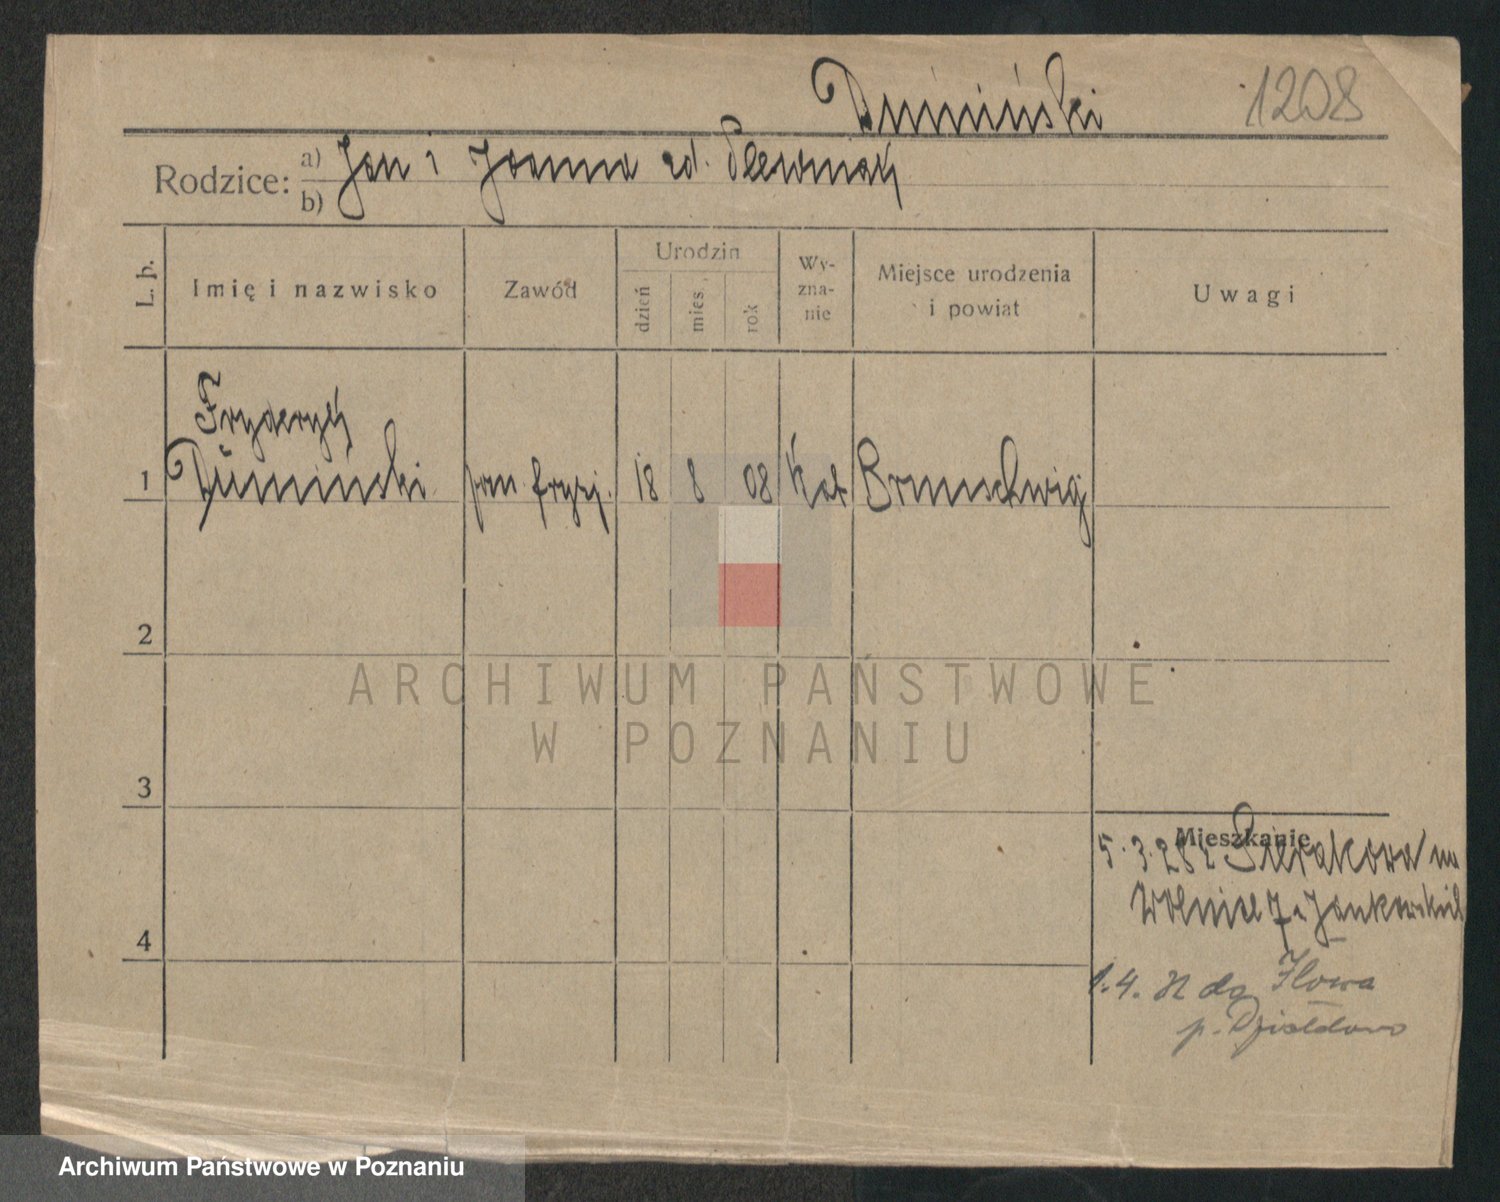 Dumiński
1208
Rodzice:
a) Jan i Joanna zd.
b)
L. p.
Imię i nazwisko
Zawód
Urodzin
dzień
mies.
rok
Wy-
zna-
nie
Miejsce urodzenia
i powiat
Uwagi
Fryderyk
1 Dŭmiński pom. fryzj. 18 8 08 kat Brunschwig
2
3
4
Mieszkanie
5.3.28 z Sierakowa
Wolnica 7 u
1.4. do Iłowa
p. Działdowo
ARCHIWUM PAŃSTWOWE
W POZNANIU
Archiwum Państwowe w Poznaniu